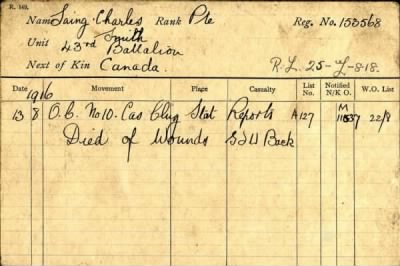 R. 149.
Name Laing. Charles Rank Pte Reg. No. 153568
Smith
Unit 43rd Battalion
Next of Kin Canada. R.L. 25-L-8-18.
Date Movement Place Casualty List No. Notified N/K O. W.O. List
1916
13 8 O.C. No 10. Cas Clng Stat Reports A127 M 22/8
Died of Wounds GSW Back